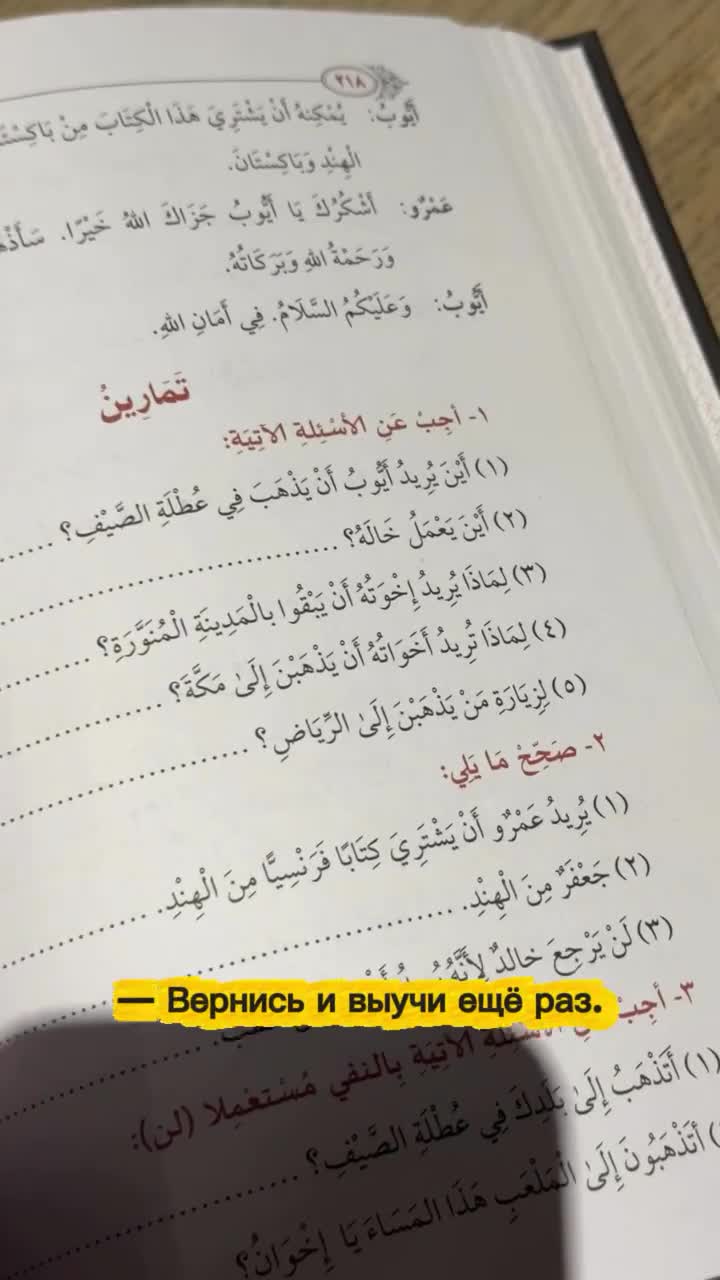 ٢١٨
أَيُّوبُ: يُمْكِنُهُ أَنْ يَشْتَرِيَ هَذَا الْكِتَابَ مِنْ
الْهِنْدِ وَبَاكِسْتَانَ.
عَمْرٌو: أَشْكُرُكَ يَا أَيُّوبُ جَزَاكَ اللهُ خَيْرًا.
وَرَحْمَةُ اللهِ وَبَرَكَاتُهُ.
أَيُّوبُ: وَعَلَيْكُمُ السَّلَامُ. فِي أَمَانِ اللهِ.
تَمَارِينُ
١- أَجِبْ عَنِ الأَسْئِلَةِ الآتِيَةِ:
(١) أَيْنَ يُرِيدُ أَيُّوبُ أَنْ يَذْهَبَ فِي عُطْلَةِ الصَّيْفِ؟
(٢) أَيْنَ يَعْمَلُ خَالُهُ؟
(٣) لِمَاذَا يُرِيدُ إِخْوَتُهُ أَنْ يَبْقُوا بِالْمَدِينَةِ الْمُنَوَّرَةِ؟
(٤) لِمَاذَا تُرِيدُ أَخَوَاتُهُ أَنْ يَذْهَبْنَ إِلَىٰ مَكَّةَ؟
(٥) لِزِيَارَةِ مَنْ يَذْهَبْنَ إِلَىٰ الرِّيَاضِ؟
٢- صَحِّحْ مَا يَلِي:
(١) يُرِيدُ عَمْرٌو أَنْ يَشْتَرِيَ كِتَابًا فَرَنْسِيًّا مِنَ الْهِنْدِ.
(٢) جَعْفَرٌ مِنَ الْهِنْدِ.
(٣) لَنْ يَرْجِعَ خَالِدٌ لِأَنَّهُ
— Вернись и выучи ещё раз.
٣- أَجِبْ الأَسْئِلَةِ الآتِيَةِ بِالنفي مُسْتَعْمِلا (لن):
(١) أَتَذْهَبُ إِلَىٰ بَلَدِكَ فِي عُطْلَةِ الصَّيْفِ؟
أَتَذْهَبُونَ إِلَىٰ الْمَلْعَبِ هَذَا المَسَاءَ يَا إِخْوَانُ؟